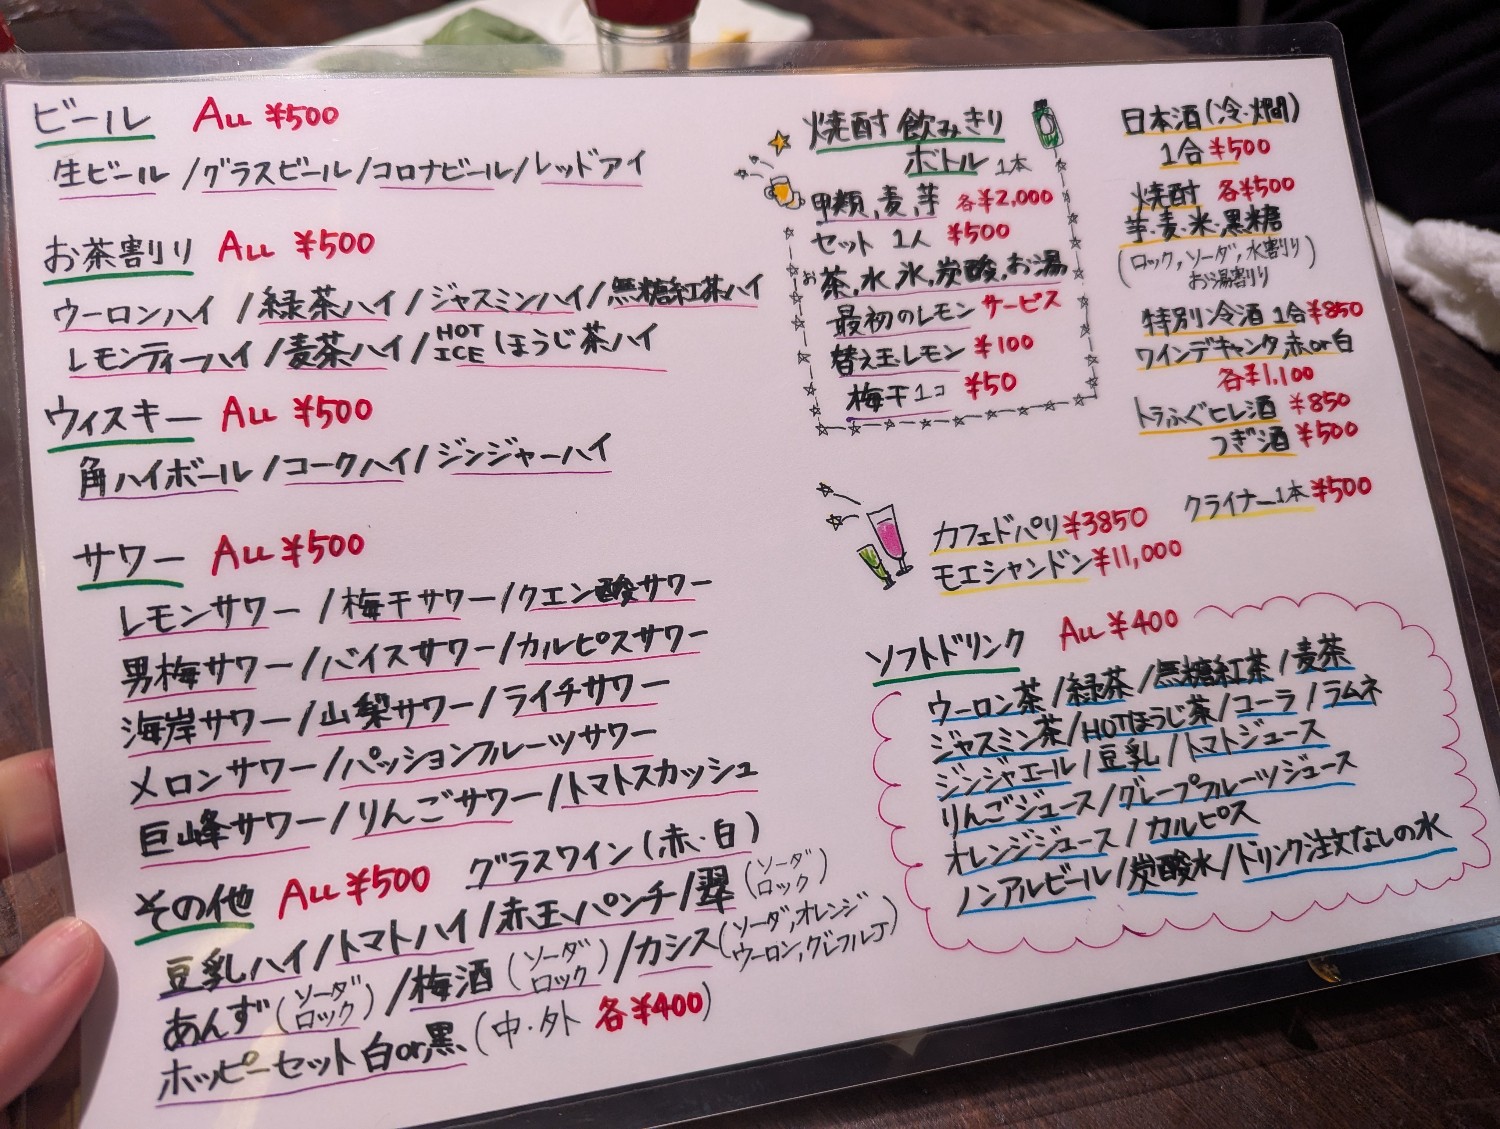 ビール All ¥500
生ビール/グラスビール/コロナビール/レッドアイ
お茶割り All ¥500
ウーロンハイ/緑茶ハイ/ジャスミンハイ/無糖紅茶ハイ
レモンティーハイ/麦茶ハイ/HOT ICE ほうじ茶ハイ
ウィスキー All ¥500
角ハイボール/コークハイ/ジンジャーハイ
サワー All ¥500
レモンサワー/梅干サワー/クエン酸サワー
男梅サワー/バイスサワー/カルピスサワー
海岸サワー/山梨サワー/ライチサワー
メロンサワー/パッションフルーツサワー
巨峰サワー/りんごサワー/トマトスカッシュ
その他 All ¥500 グラスワイン(赤・白)
豆乳ハイ/トマトハイ/赤玉パンチ/翠(ソーダ ロック)
あんず(ソーダ ロック)/梅酒(ソーダ ロック)/カシス(ソーダ,オレンジ ウーロン,グレフルJ)
ホッピーセット白or黒(中・外 各¥400)
焼酎 飲みきり
ボトル 1本
甲類,麦,芋 各¥2,000
セット 1人 ¥500
お茶,水,氷,炭酸,お湯
最初のレモン サービス
替え玉レモン ¥100
梅干1コ ¥50
日本酒(冷・燗)
1合 ¥500
焼酎 各¥500
芋・麦・米・黒糖
(ロック,ソーダ,水割り
お湯割り)
特別冷酒1合 ¥850
ワインデキャンタ赤or白
各¥1,100
トラふぐヒレ酒 ¥850
つぎ酒 ¥500
クライナー1本 ¥500
カフェドパリ ¥3850
モエシャンドン ¥11,000
ソフトドリンク All ¥400
ウーロン茶/緑茶/無糖紅茶/麦茶
ジャスミン茶/HOTほうじ茶/コーラ/ラムネ
ジンジャエール/豆乳/トマトジュース
りんごジュース/グレープフルーツジュース
オレンジジュース/カルピス
ノンアルビール/炭酸水/ドリンク注文なしの水